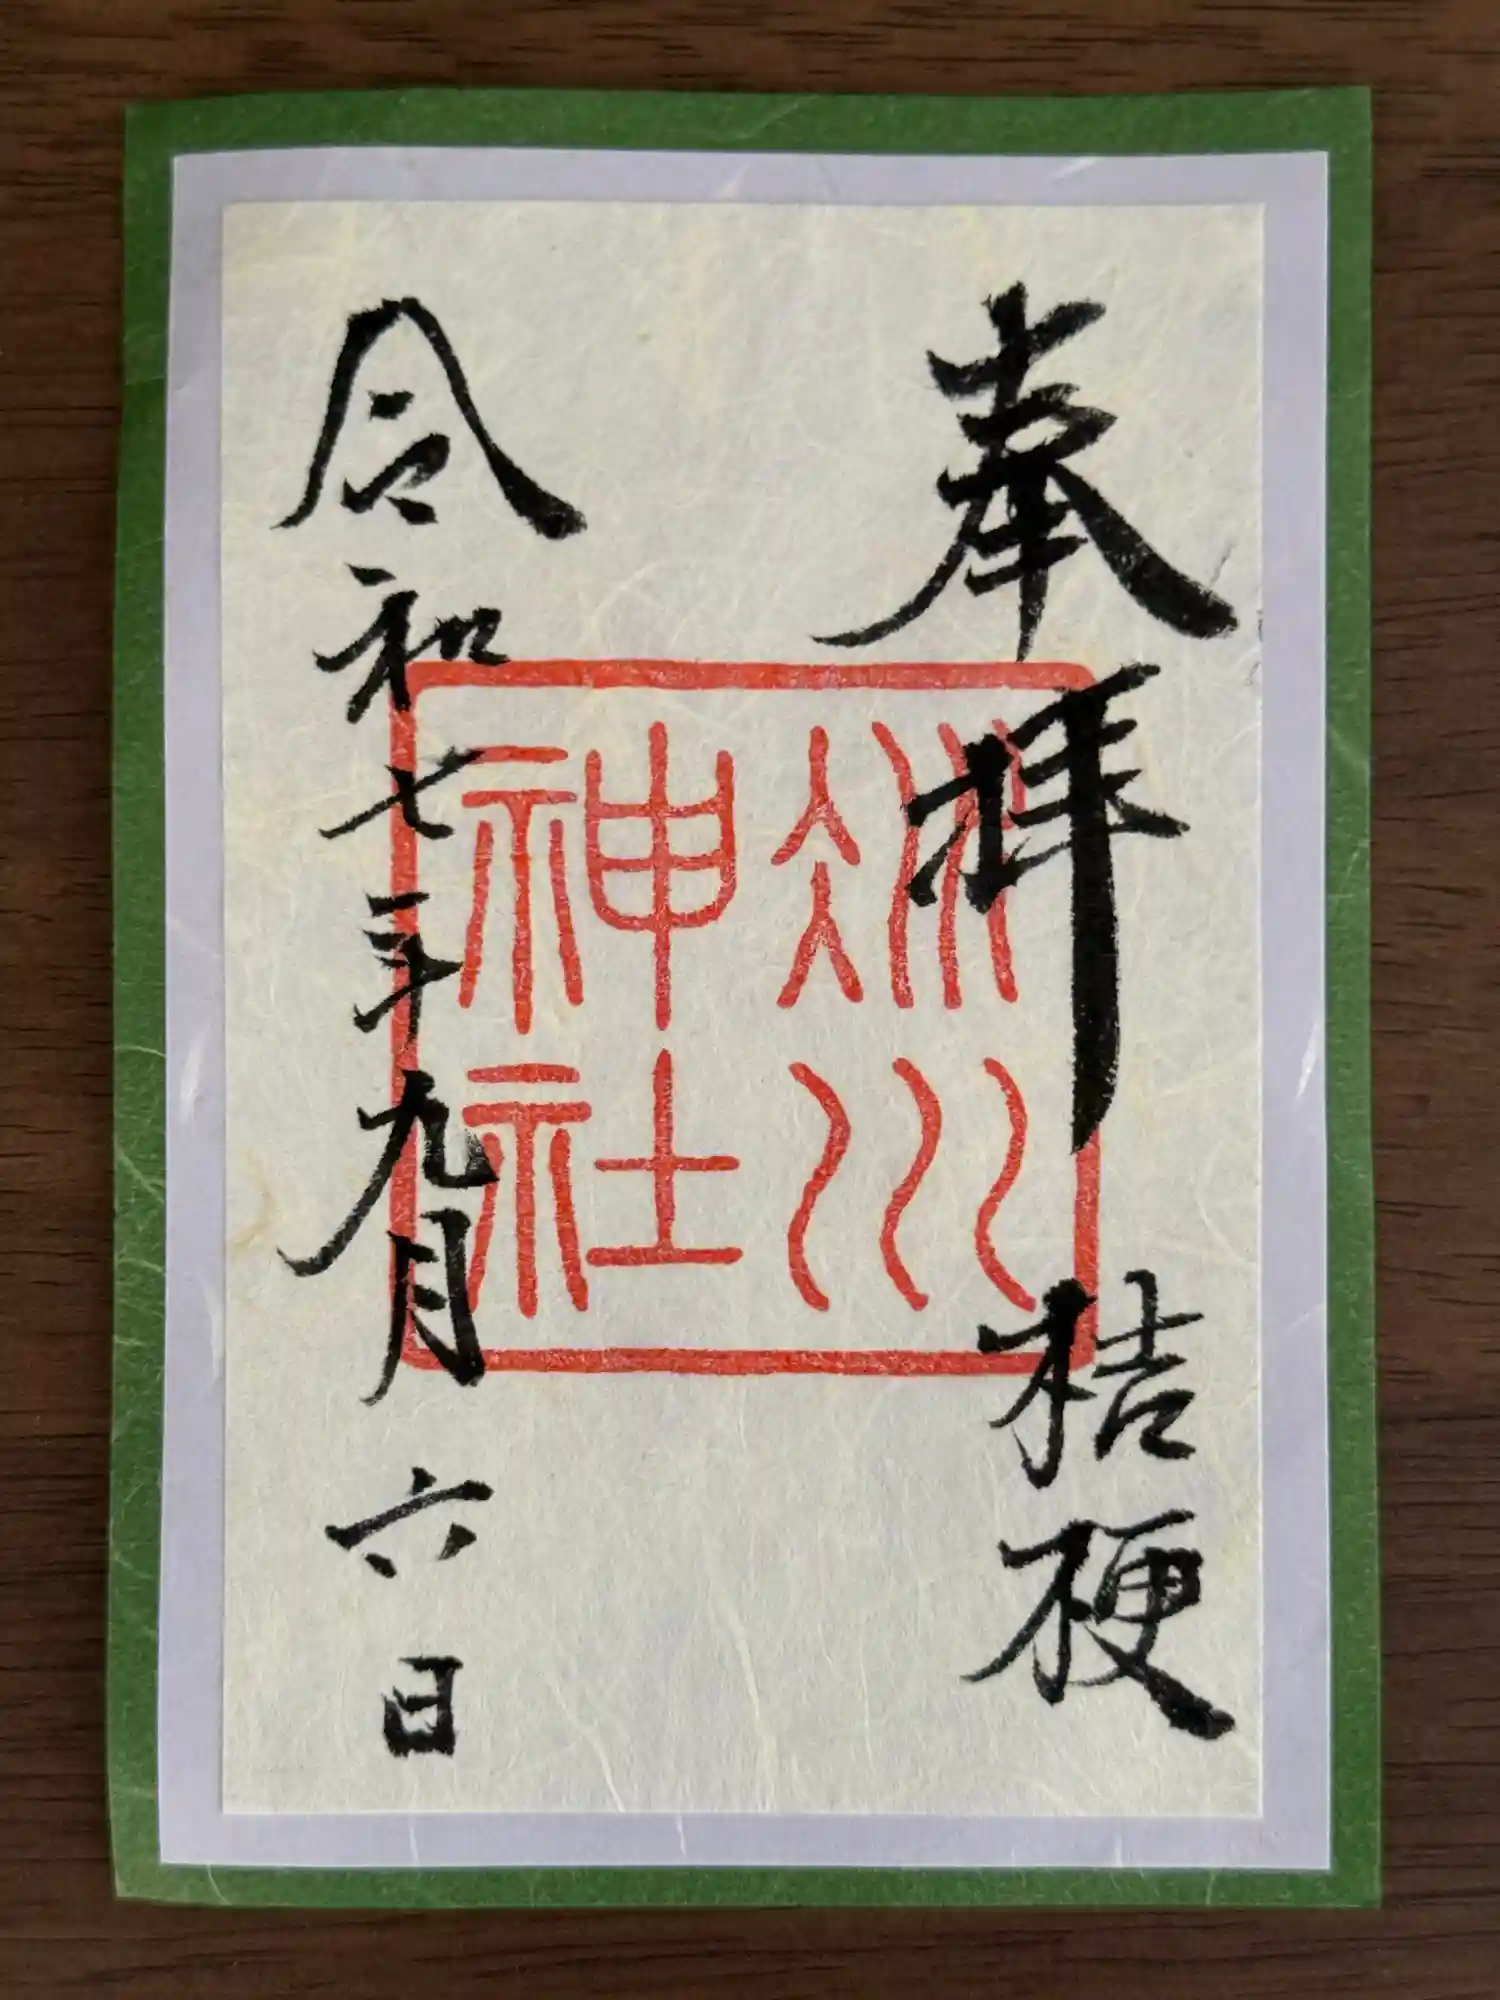 奉拝 桔梗
氷川
神社
令和七年九月六日